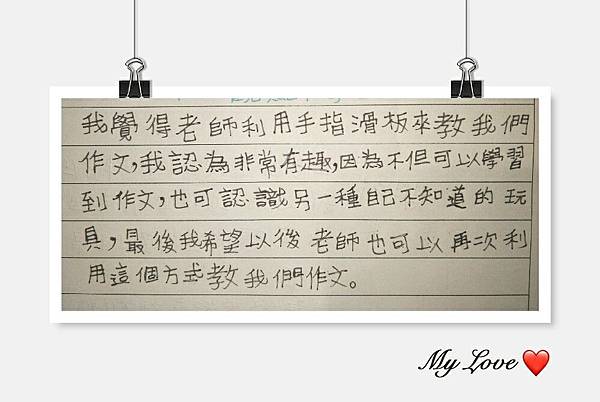 我覺得老師利用手指滑板來教我們
作文,我認為非常有趣,因為不但可以學習
到作文,也可認識另一種自己不知道的玩
具,最後我希望以後老師也可以再次利
用這個方式教我們作文。
My Love